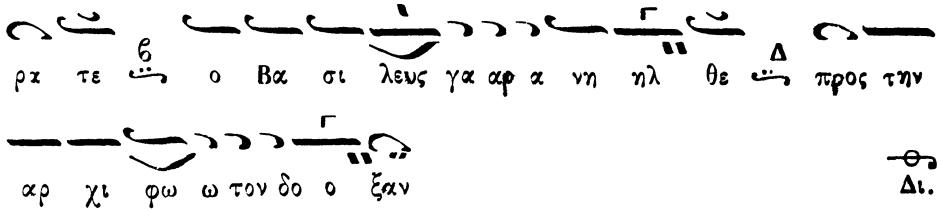 ρχ τε ο Βα σι λευς γα αρ α νη ηλ θε Δ προς την
αρ χι φω ω τον δο ο ξαν Δι.